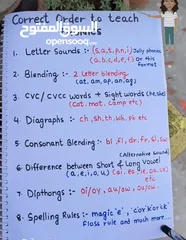 Correct Order to teach
السوق المفتوح
1. Letter Sounds :- (s,a,t,p,n,i) Jolly phonics
(a,b,c,d,e,f) Or this format
2. Blending :- 2 letter blending
(at, am, ap, an, ag)
3. CVC / CVCC words + Sight words (he, she)
(Cat, mat, Camp etc)
4. Diagraphs :- ch, sh, th, wh, ph etc
5. Consonant Blending :- bl, fl, dr, fr, sl, sw
(Alternative Sound)
6. Difference between Short & Long Vowel
(a, e, i, o, u)
etc
7. Dipthongs :- oi/oy, aw/au, ou/ow
8. Spelling Rules :- magic 'e', 'c' or k or ck
Floss rule and much more....